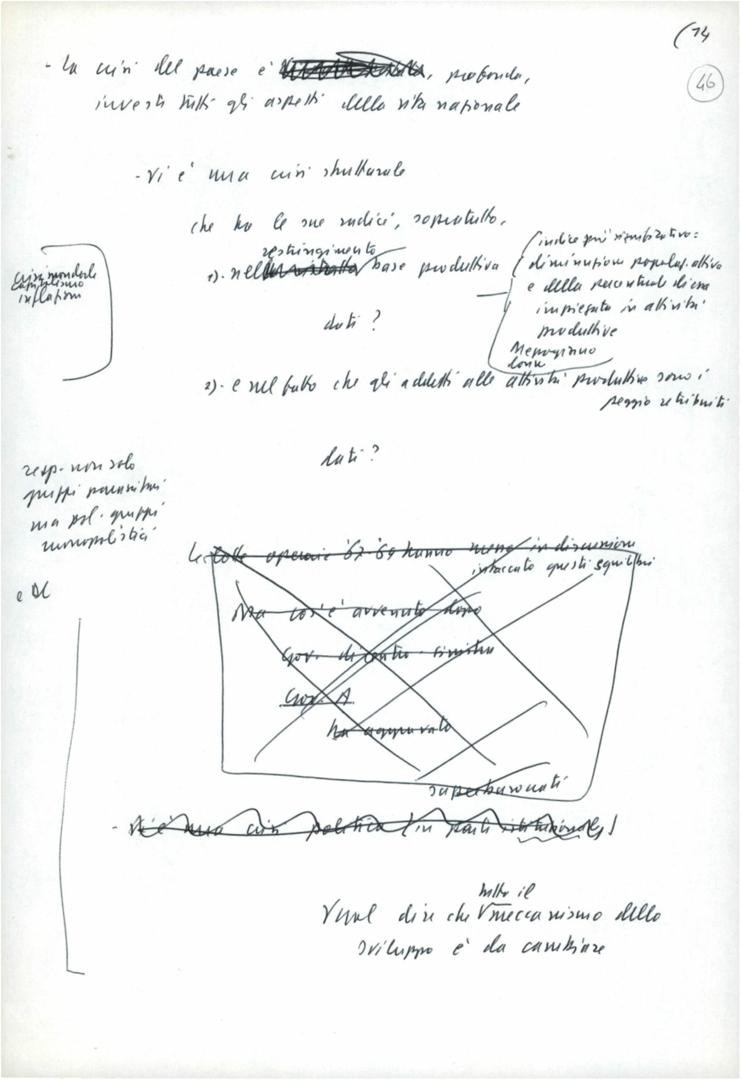 (14
46
- La crisi del paese è , profonda,
investe tutti gli aspetti della vita nazionale
- Vi è una crisi strutturale
che ha le sue radici, sopratutto,
restringimento
1). nel base produttiva
(indice più significativo:
diminuzione popolaz. attiva
e della percentuale di essa
impiegata in attività
produttive
Mezzogiorno
donne
crisi mondiale
capitalismo
inflazione
dati?
2). e nel fatto che gli addetti alle attività produttive sono i
peggio retribuiti
dati?
resp. non solo
gruppi parassitari
ma pol. gruppi
monopolistici
e DC
Le lotte operaie '67-'69 hanno messo in discussione
intaccato questi squilibri
Ma cos'è avvenuto dopo
Gov. di centro-sinistra
Gov. A
ha aggravato
superburocrati
- Vi è una crisi politica (in parte istituzionale)
tutto il
Vuol dire che meccanismo dello
sviluppo è da cambiare